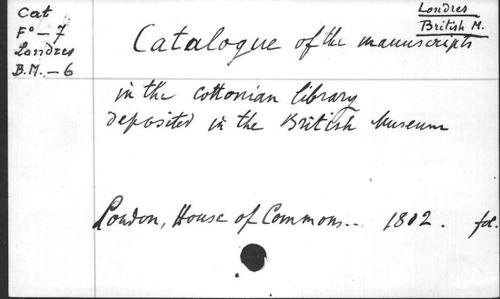 Cat
Fº - 7
Londres
B.M. - 6
Londres
British M.
Catalogue of the manuscripts
in the cottonian library
deposited in the British Museum
London, House of Commons.. 1802. fol.